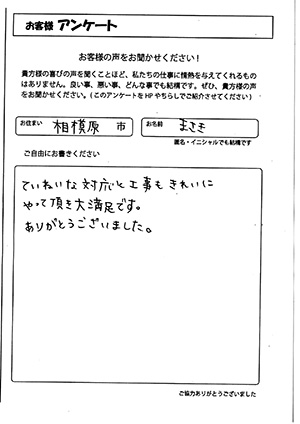 お客様 アンケート
お客様の声をお聞かせください!
貴方様の喜びの声を聞くことほど、私たちの仕事に情熱を与えてくれるもの
はありません。良い事、悪い事、どんな事でも結構です。ぜひ、貴方様の声
をお聞かせください。(このアンケートをHPやちらしでご紹介させてください)
お住まい 相模原 市 お名前 まさき
匿名・イニシャルでも結構です
ご自由にお書きください
ていねいな対応と工事もきれいに
やって頂き大満足です。
ありがとうございました。
ご協力ありがとうございました